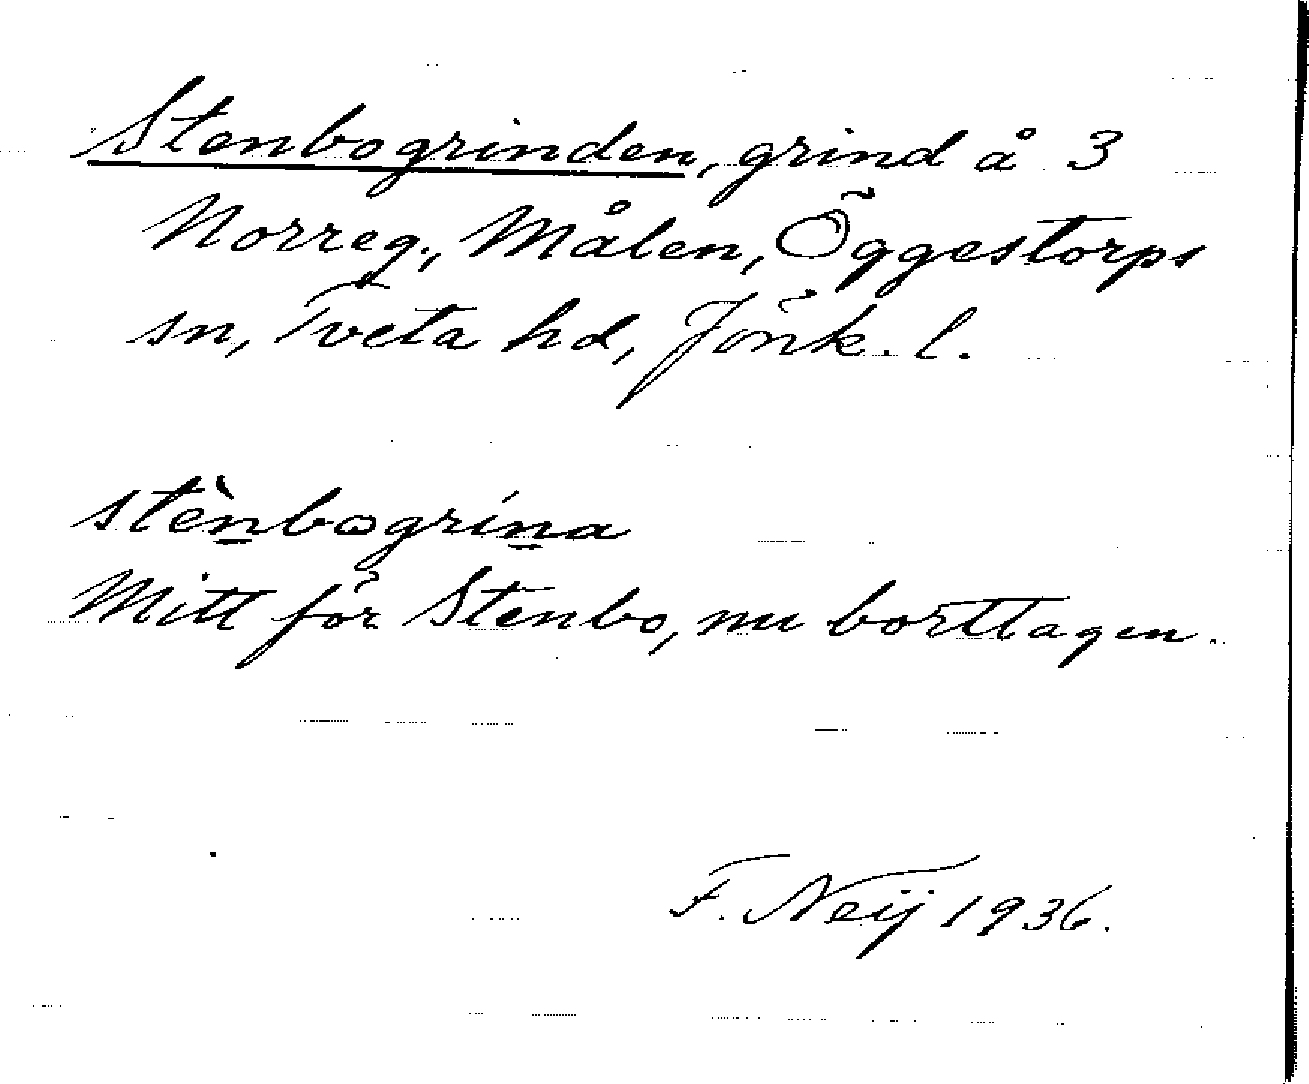 Stenbogrinden, grind å 3
Norreg., Målen, Öggestorps
sn, Tveta hd, Jönk. l.
stènbogrína
Mitt för Stenbo, nu borttagen.
F. Neij 1936.